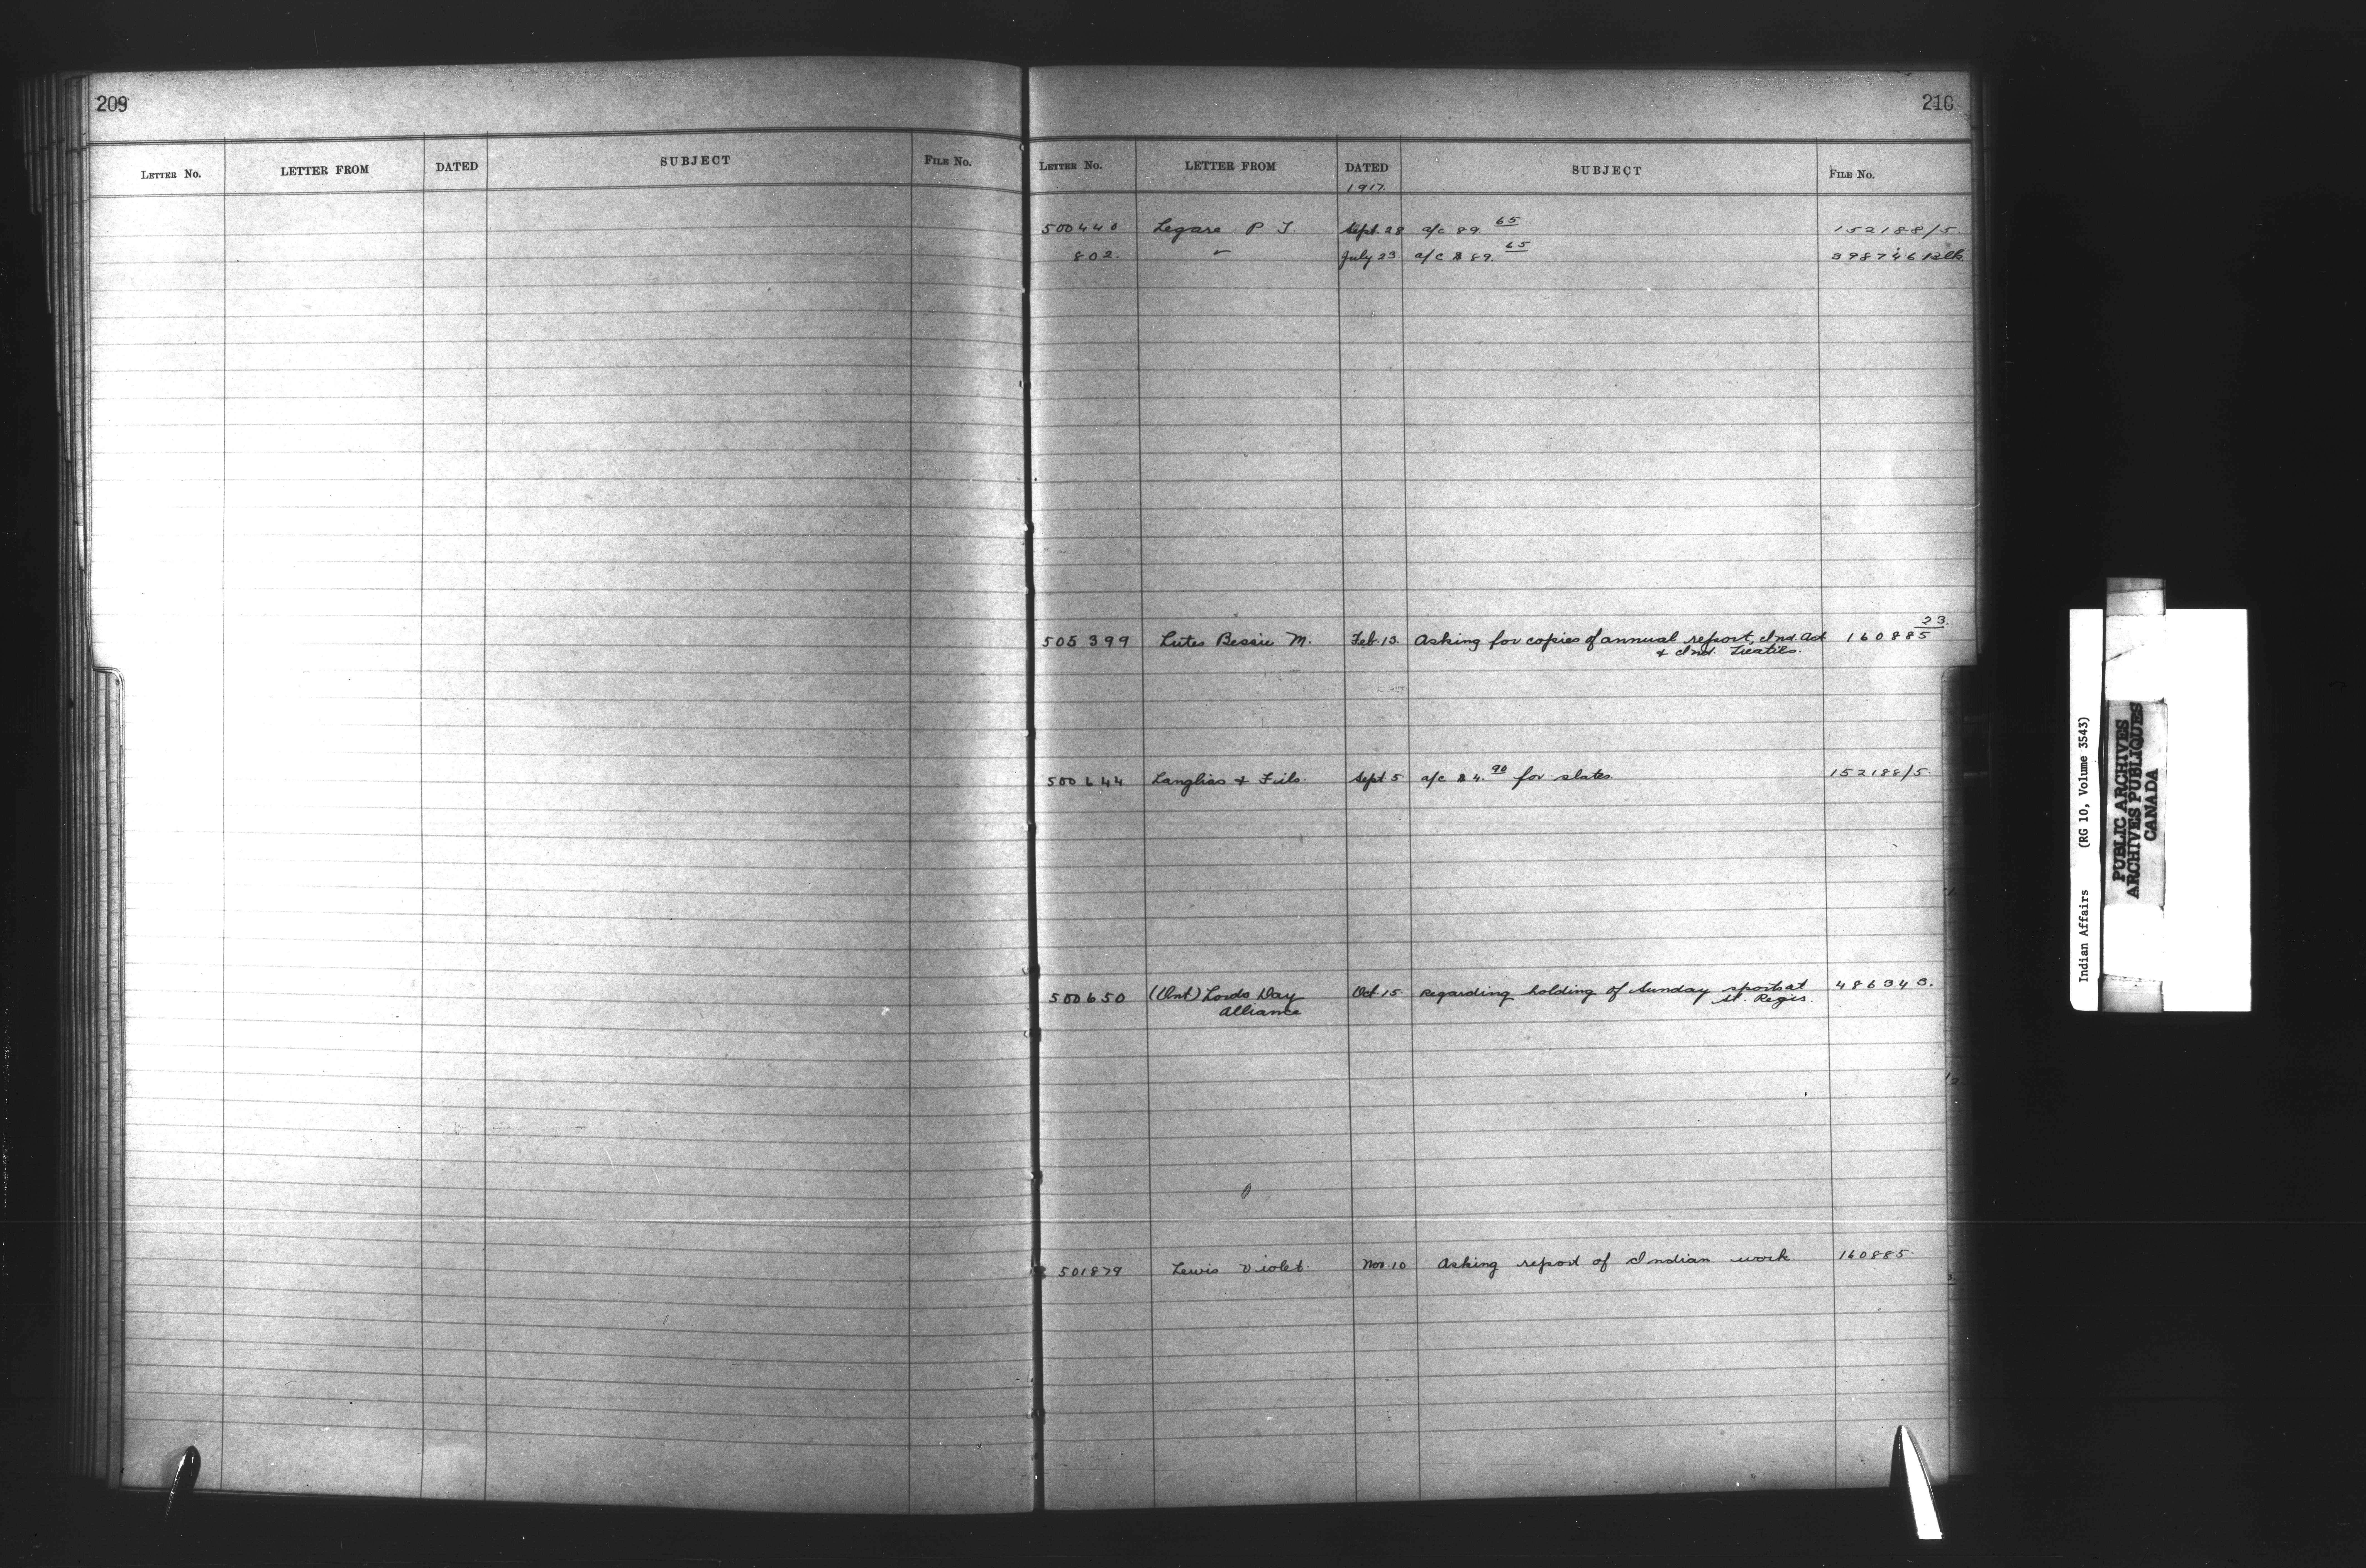 209
LETTER NO. LETTER FROM DATED SUBJECT FILE NO.
210
LETTER NO. LETTER FROM DATED SUBJECT FILE NO.
1917.
500440 Legare P T. Sept. 28 a/c 89 65 152188/5.
802. " July 23 a/c $ 89. 65 398746
505399 Lutes Bessie M. Feb. 13. Asking for copies of annual report, Ind. Act 160885 23.
& Ind. Treaties.
500644 Langlias & Fils. Sept 5 a/c $ 4. 90 for slates. 152188/5.
500650 (Ont) Lords Day Oct. 15. Regarding holding of Sunday sports at 486343.
Alliance St. Regis.
501879 Lewis Violet. Nov. 10 Asking report of Indian work. 160885.
Indian Affairs (RG 10, Volume 3543)
PUBLIC ARCHIVES
ARCHIVES PUBLIQUES
CANADA